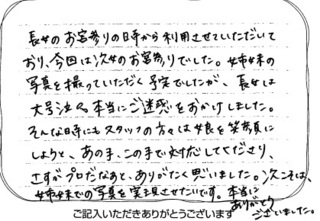 長女のお宮参りの時から利用させていただいて
おり、今回は次女のお宮参りでした。姉妹の
写真を撮っていただく予定でしたが、長女は
大号泣で、本当にご迷惑をおかけしました。
そんな時にもスタッフの方々は娘を笑顔に
しようと、あの手、この手で対応してくださり、
さすがプロだなあと、ありがたく思いました。次こそは、
姉妹での写真を実現させたいです。本当に
ありがとう
ございました。
ご記入いただきありがとうございます